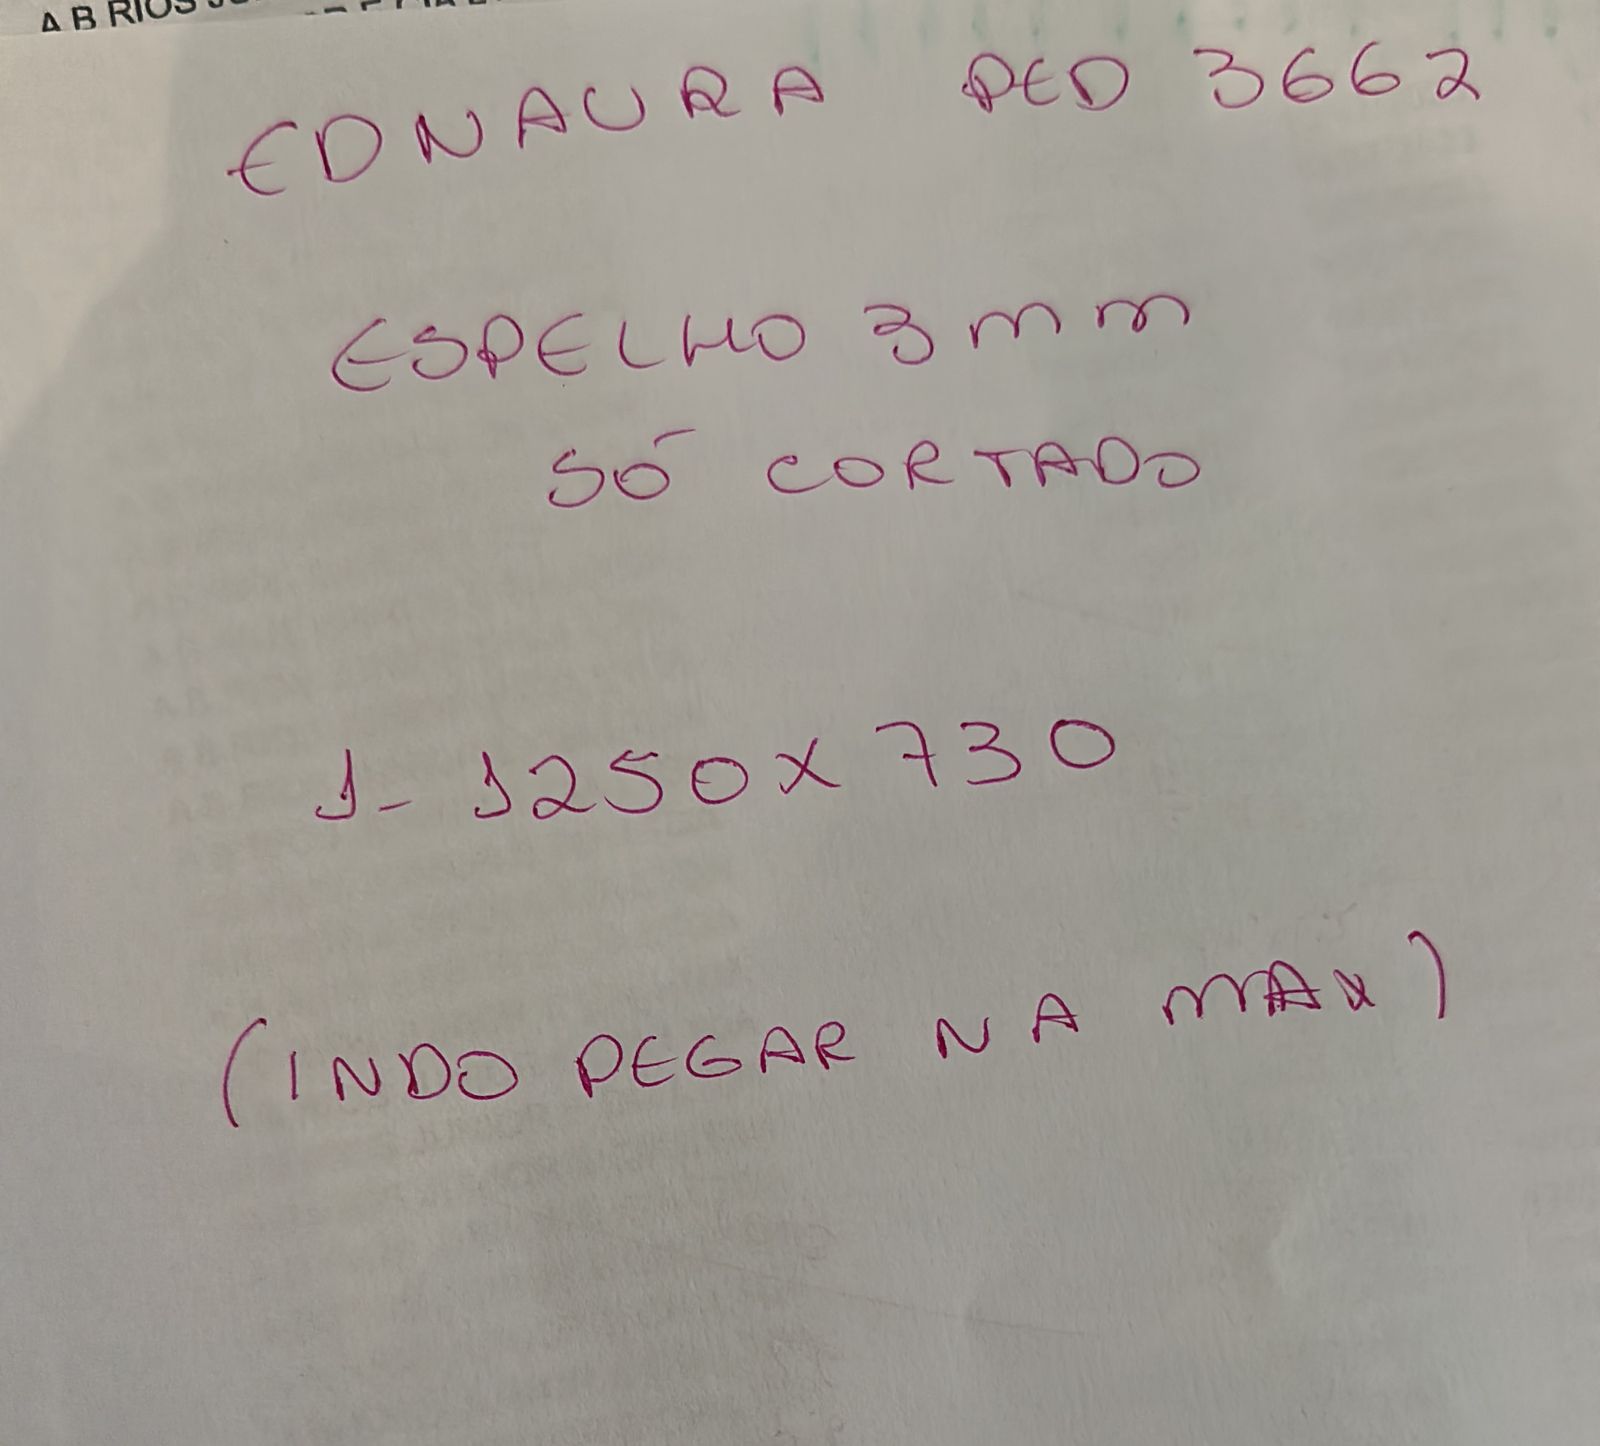 A B RIOS
EDNAURA PED 3662
ESPELHO 3mm
SÓ CORTADO
1- 1250x730
(INDO PEGAR NA MAX)